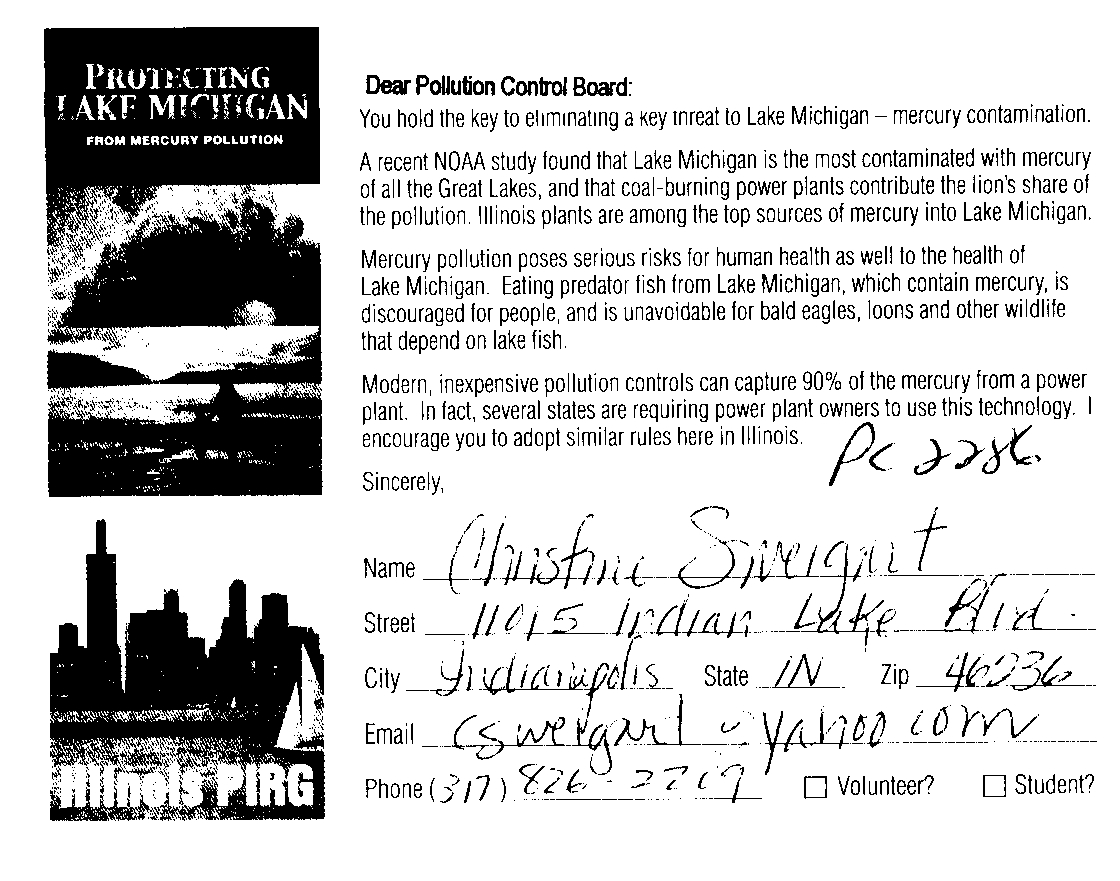 PROTECTING
LAKE MICHIGAN
FROM MERCURY POLLUTION
Illinois PIRG
Dear Pollution Control Board:
You hold the key to eliminating a key threat to Lake Michigan – mercury contamination.
A recent NOAA study found that Lake Michigan is the most contaminated with mercury
of all the Great Lakes, and that coal-burning power plants contribute the lion's share of
the pollution. Illinois plants are among the top sources of mercury into Lake Michigan.
Mercury pollution poses serious risks for human health as well to the health of
Lake Michigan. Eating predator fish from Lake Michigan, which contain mercury, is
discouraged for people, and is unavoidable for bald eagles, loons and other wildlife
that depend on lake fish.
Modern, inexpensive pollution controls can capture 90% of the mercury from a power
plant. In fact, several states are requiring power plant owners to use this technology. I
encourage you to adopt similar rules here in Illinois.
PC 2286
Sincerely,
Name Christine Sweigart
Street 11015 Indian Lake Blvd.
City Indianapolis State IN Zip 46236
Email yahoo com
Phone (317) 826-2219
Volunteer? Student?